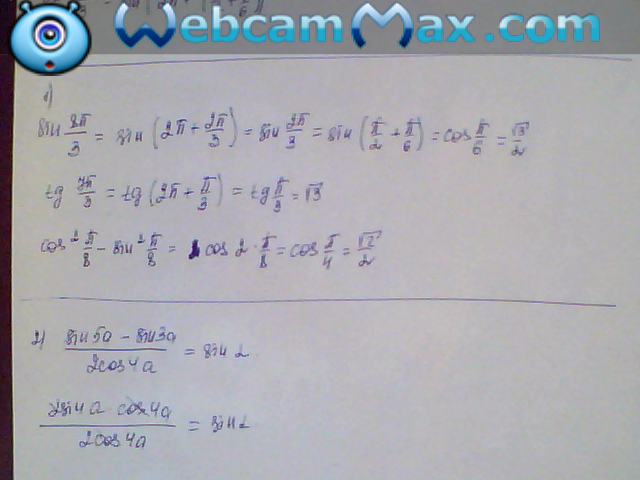 WebcamMax.com
1)
sin 8π/3 = sin (2π + 2π/3) = sin 2π/3 = sin (π/2 + π/6) = cos π/6 = √3/2
tg 7π/3 = tg (2π + π/3) = tg π/3 = √3
cos² π/8 − sin² π/8 = cos 2 · π/8 = cos π/4 = √2/2
2) (sin5a − sin3a)/(2cos4a) = sin α
(2sin4a cos4a)/(2cos4a) = sin α